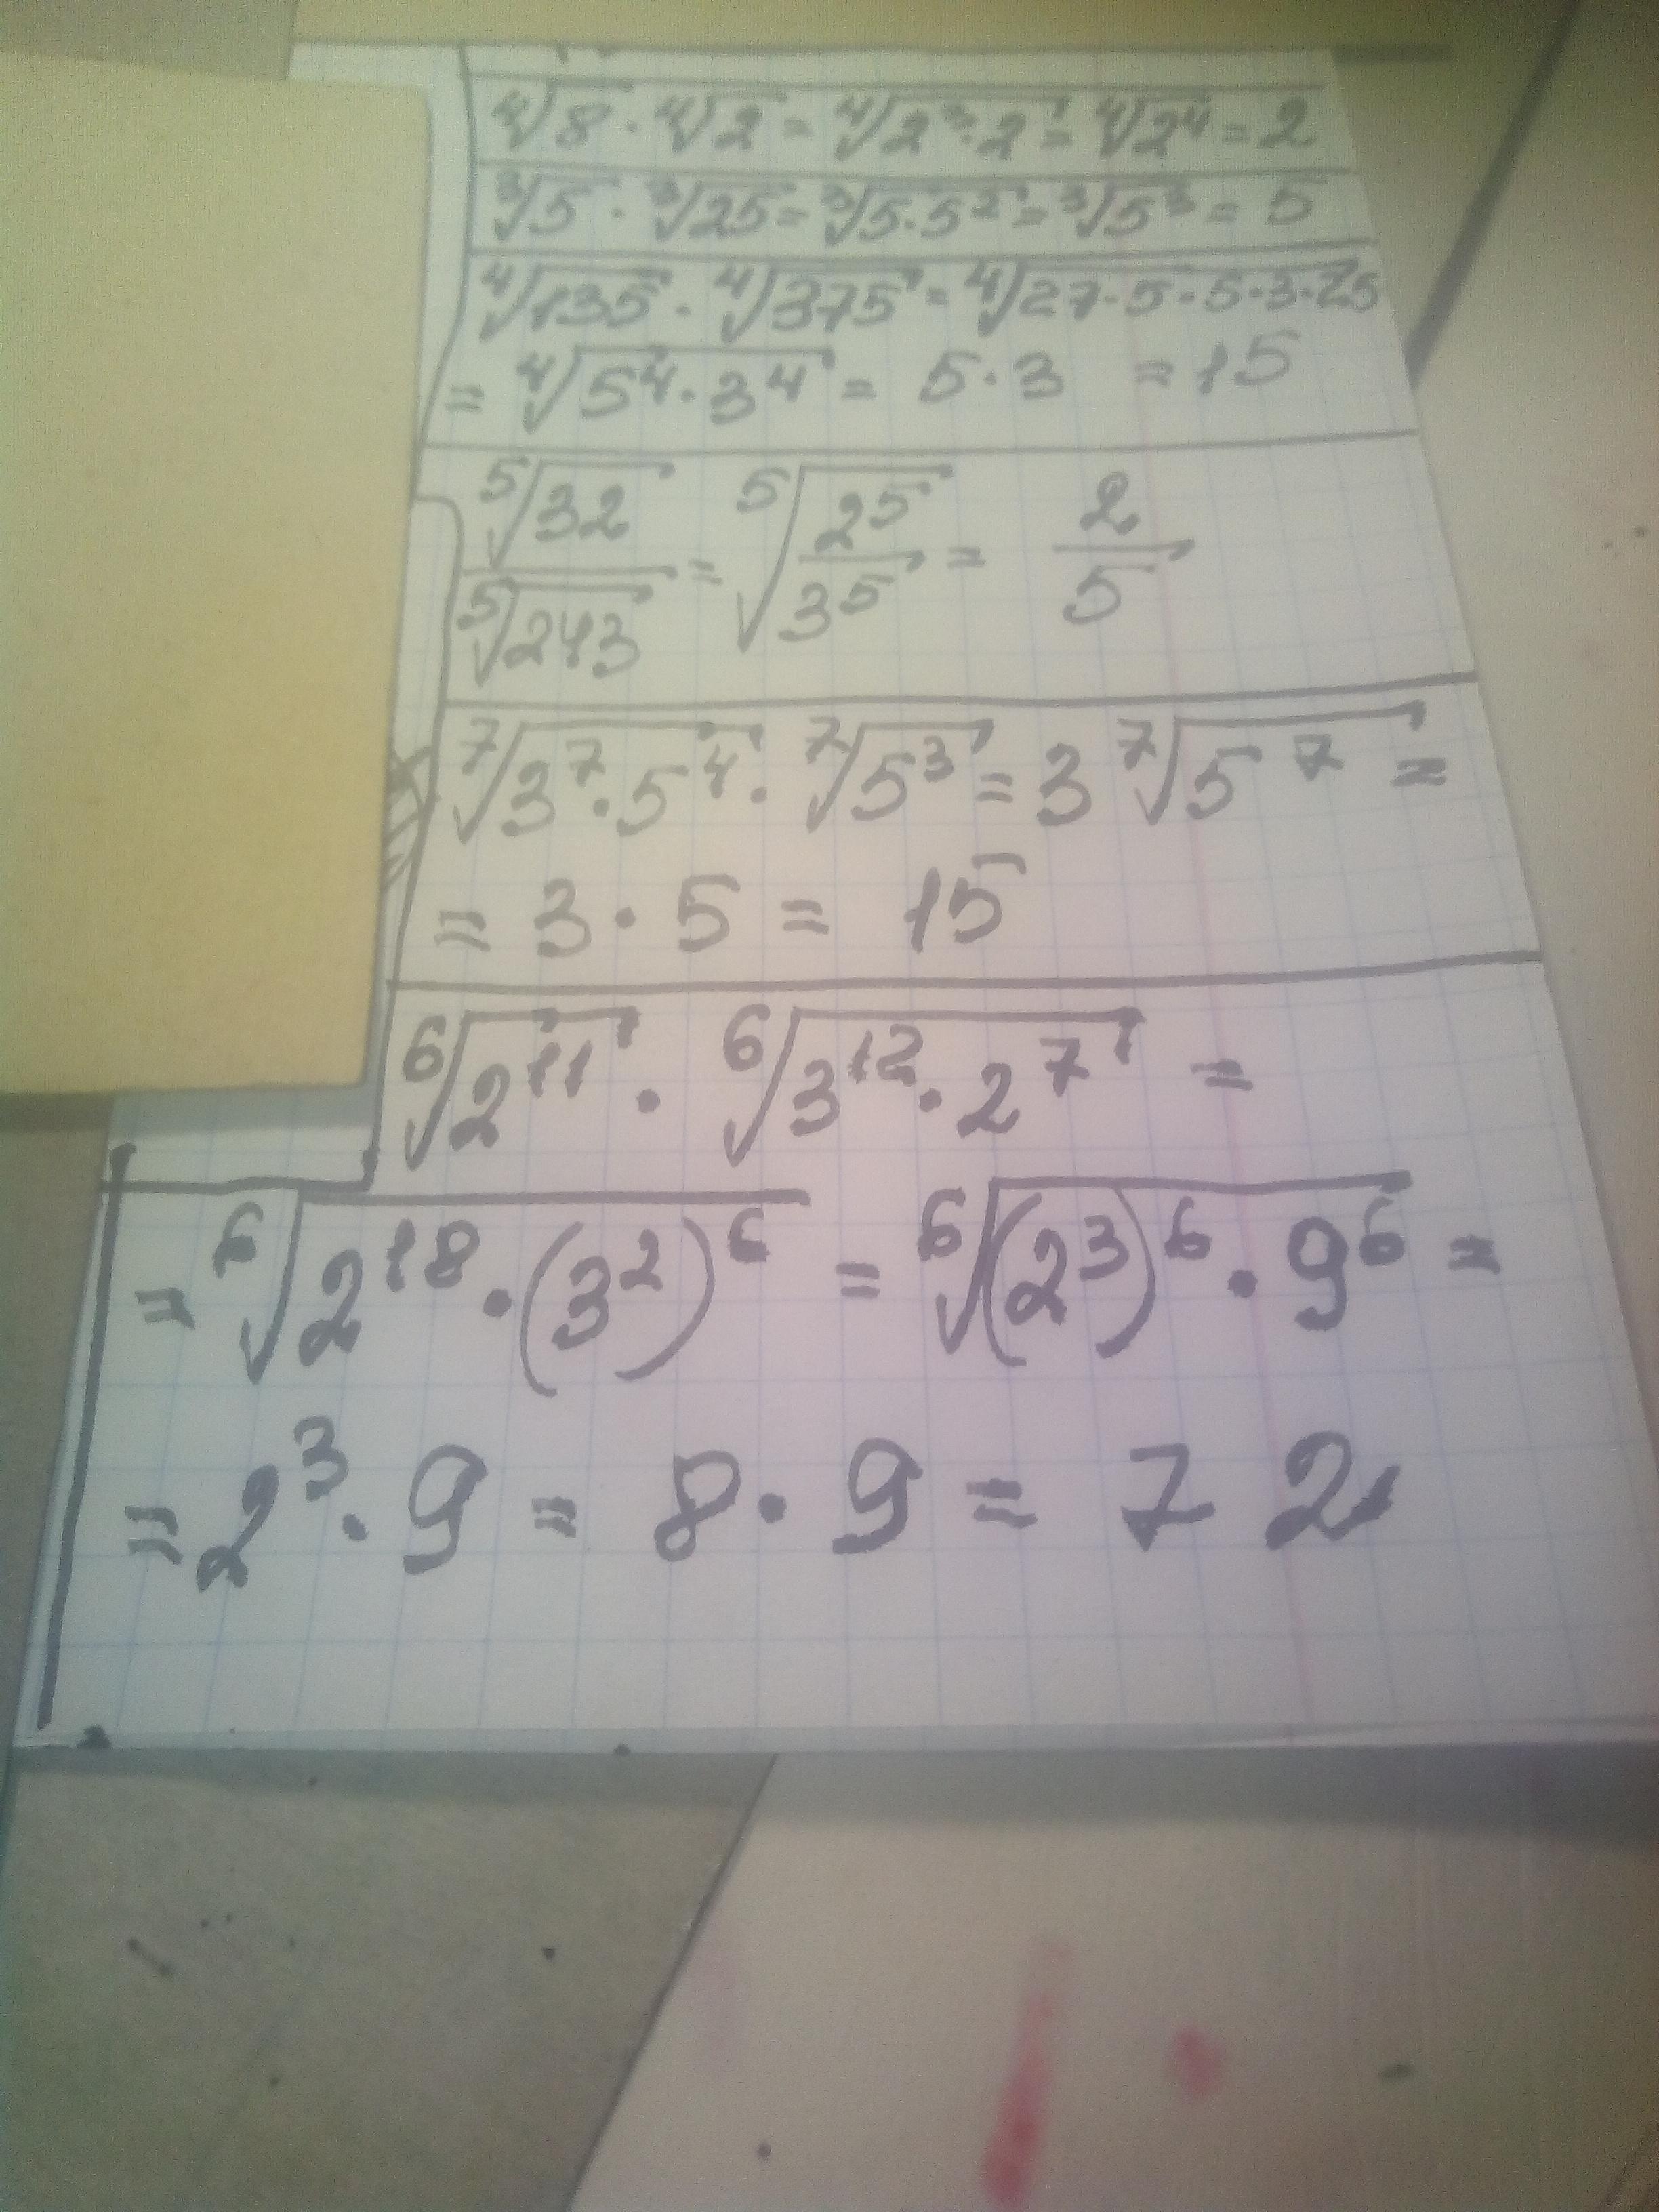 ⁴√8 · ⁴√2 = ⁴√(2³·2) = ⁴√(2⁴) = 2
³√5 · ³√25 = ³√(5·5²) = ³√(5³) = 5
⁴√135 · ⁴√375 = ⁴√(27·5·5·3·25)
= ⁴√(5⁴·3⁴) = 5·3 = 15
⁵√32 / ⁵√243 = ⁵√(2⁵/3⁵) = 2/5
⁷√(3⁷·5⁴) · ⁷√(5³) = 3 ⁷√(5⁷) =
= 3 · 5 = 15
⁶√(2¹¹) · ⁶√(3¹²·2⁷) =
= ⁶√(2¹⁸·(3²)⁶) = ⁶√((2³)⁶·9⁶) =
= 2³ · 9 = 8 · 9 = 72